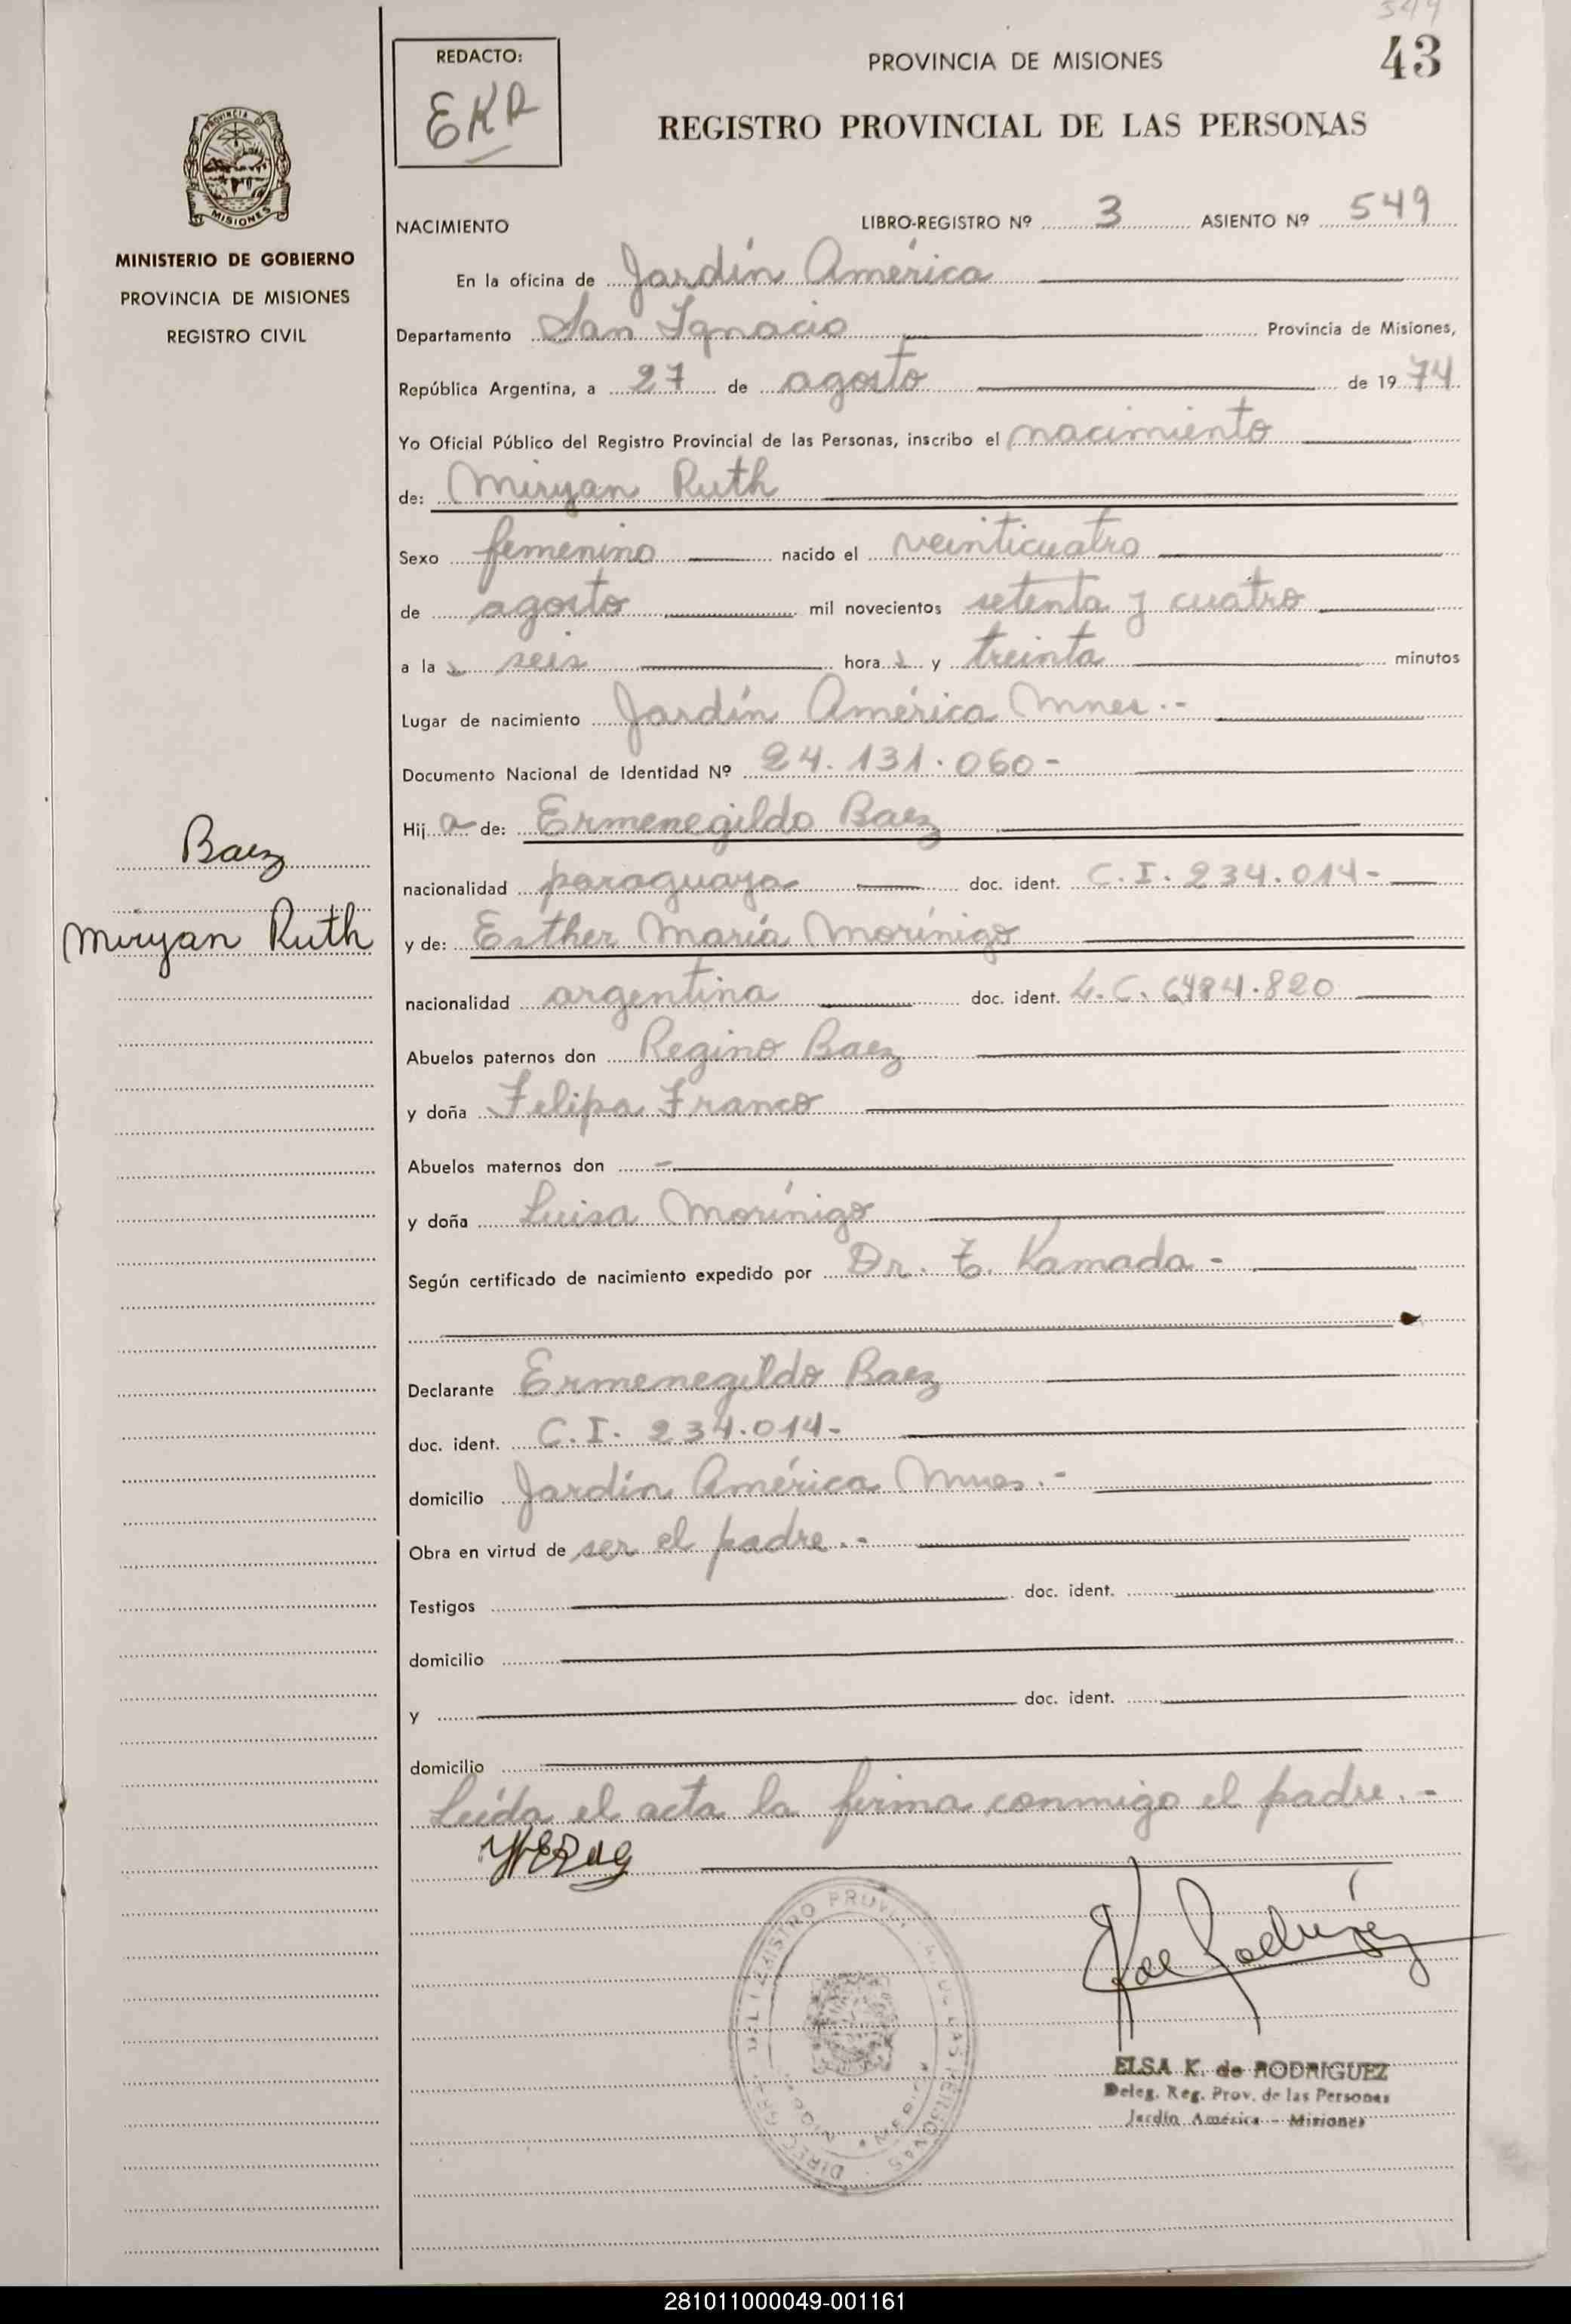 REDACTO:
EKR
PROVINCIA DE MISIONES
549
43
REGISTRO PROVINCIAL DE LAS PERSONAS
PROVINCIA DE
MISIONES
MINISTERIO DE GOBIERNO
PROVINCIA DE MISIONES
REGISTRO CIVIL
NACIMIENTO LIBRO-REGISTRO Nº 3 ASIENTO Nº 549
En la oficina de Jardín América
Departamento San Ignacio Provincia de Misiones,
República Argentina, a 27 de agosto de 1974
Yo Oficial Público del Registro Provincial de las Personas, inscribo el nacimiento
de: Miryan Ruth
Sexo femenino nacido el veinticuatro
de agosto mil novecientos setenta y cuatro
a la s seis hora s y treinta minutos
Lugar de nacimiento Jardín América Mnes.-
Documento Nacional de Identidad Nº 24.131.060-
Hij a de: Ermenegildo Baez
Baez
nacionalidad paraguaya doc. ident. C.I. 234.014-
Miryan Ruth
y de: Esther María Morínigo
nacionalidad argentina doc. ident. L.C.
Abuelos paternos don Regino Baez
y doña Felipa Franco
Abuelos maternos don -
y doña Luisa Morínigo
Según certificado de nacimiento expedido por Dr. T. Kamada-
Declarante Ermenegildo Baez
doc. ident. C.I. 234.014-
domicilio Jardín América Mnes.-
Obra en virtud de ser el padre.-
Testigos doc. ident.
domicilio
y doc. ident.
domicilio
Leída el acta la firma conmigo el padre.-
ELSA K. de RODRIGUEZ
Deleg. Reg. Prov. de las Personas
Jardín América - Misiones
281011000049-001161